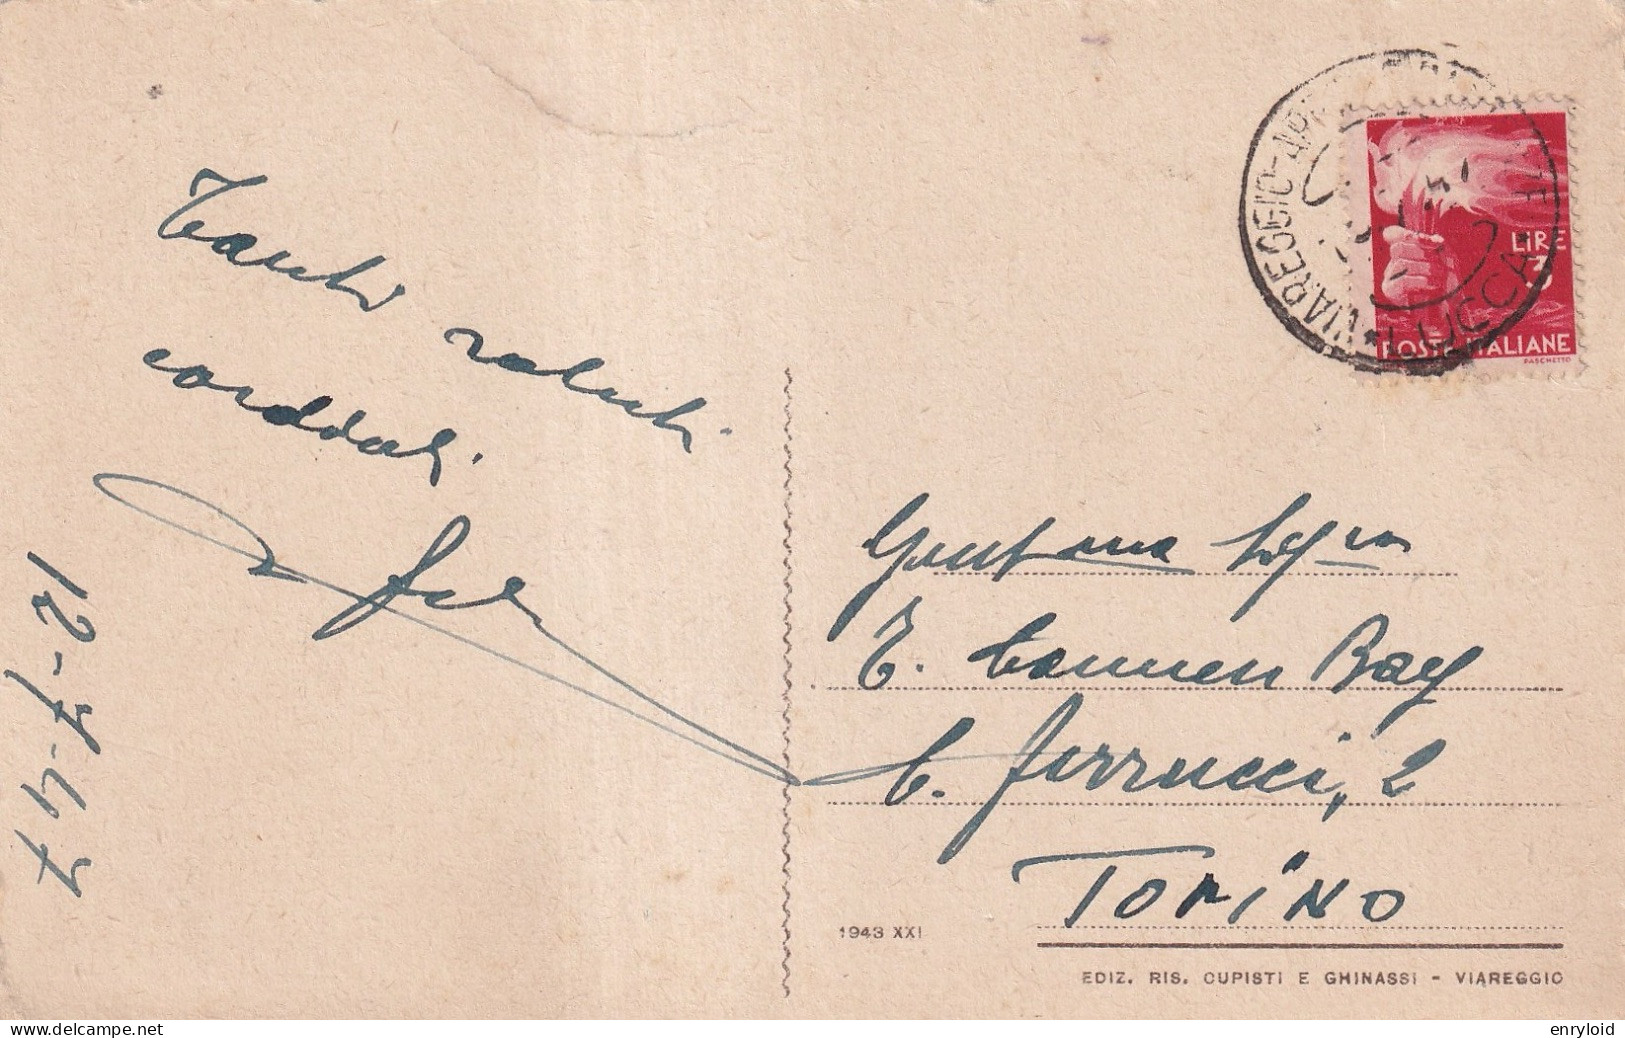 Tanti saluti
cordiali.
12-7-47
VIAREGGIO
LUCCA
LIRE
3
POSTE ITALIANE
PASCHETTO
Gent.ma Sig.na
E. Carmen Bay
C. Ferrucci, 2
TORINO
1943 XXI
EDIZ. RIS. CUPISTI E GHINASSI - VIAREGGIO
enryloid
delcampe.net